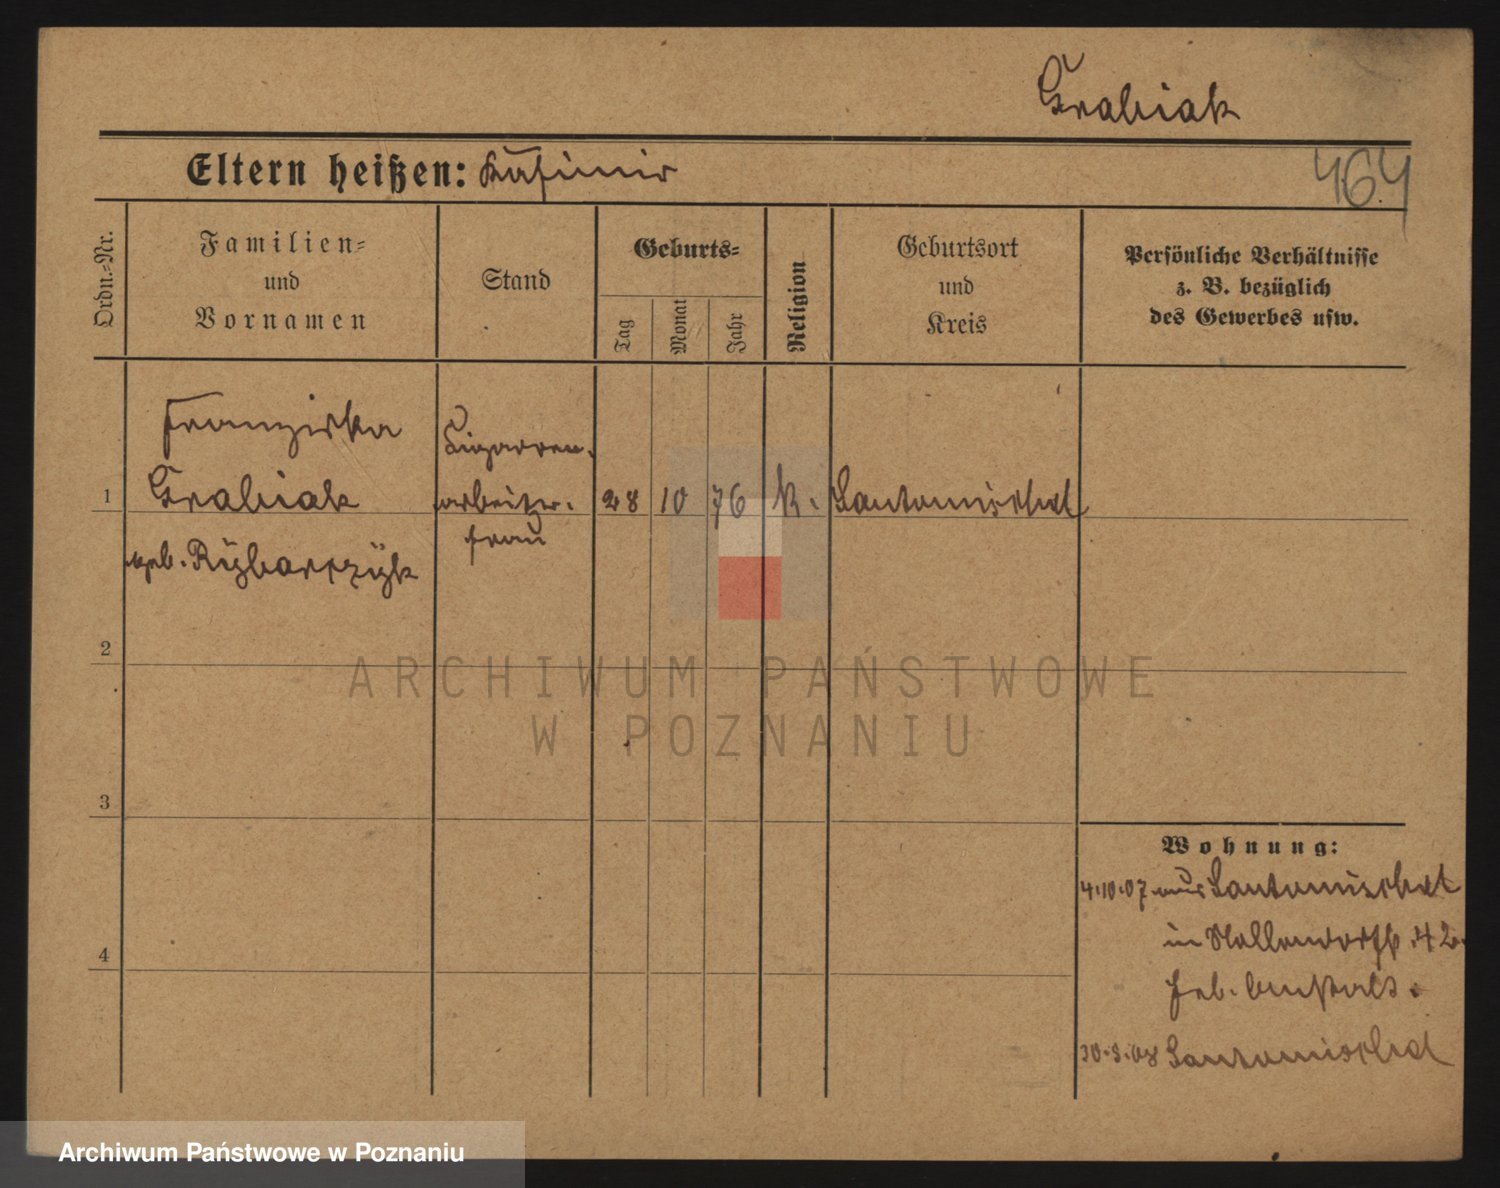 Grabiak
Eltern heißen: Kasimir
464
Ordn.-Nr.
Familien-
und
Vornamen
Stand
Geburts-
Tag
Monat
Jahr
Religion
Geburtsort
und
Kreis
Persönliche Verhältnisse
z. B. bezüglich
des Gewerbes usw.
Franziska
Cigarren-
1 Grabiak arbeiter- 28 10 76 k. Santomischel
frau
geb. Rÿbarczÿk
2
ARCHIWUM PAŃSTWOWE
W POZNANIU
3
Wohnung:
4.10.07 aus Santomischel
in 42.
4
Heb.
30.3.08 Santomischel
Archiwum Państwowe w Poznaniu